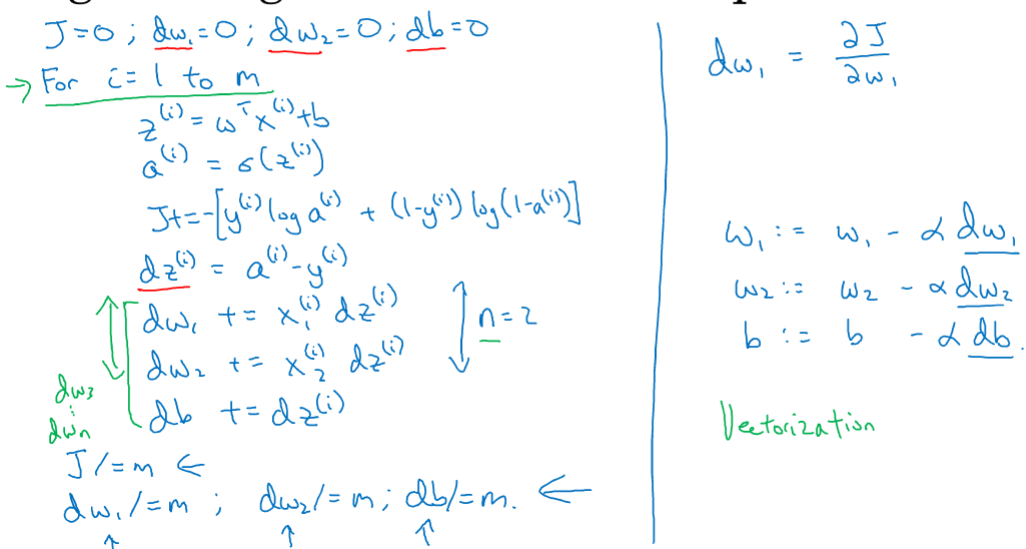 J=0 ; dw₁=0 ; dw₂=0 ; db=0
→ For i = 1 to m
z⁽ⁱ⁾ = wᵀx⁽ⁱ⁾+b
a⁽ⁱ⁾ = σ(z⁽ⁱ⁾)
J+=-[y⁽ⁱ⁾ log a⁽ⁱ⁾ + (1-y⁽ⁱ⁾) log(1-a⁽ⁱ⁾)]
dz⁽ⁱ⁾ = a⁽ⁱ⁾-y⁽ⁱ⁾
dw₁ += x₁⁽ⁱ⁾ dz⁽ⁱ⁾
dw₂ += x₂⁽ⁱ⁾ dz⁽ⁱ⁾
n=2
db += dz⁽ⁱ⁾
dw₃
⋮
dwₙ
J /= m ←
dw₁ /= m ; dw₂ /= m ; db /= m. ←
dw₁ = ∂J/∂w₁
w₁ := w₁ - α dw₁
w₂ := w₂ - α dw₂
b := b - α db.
Vectorization